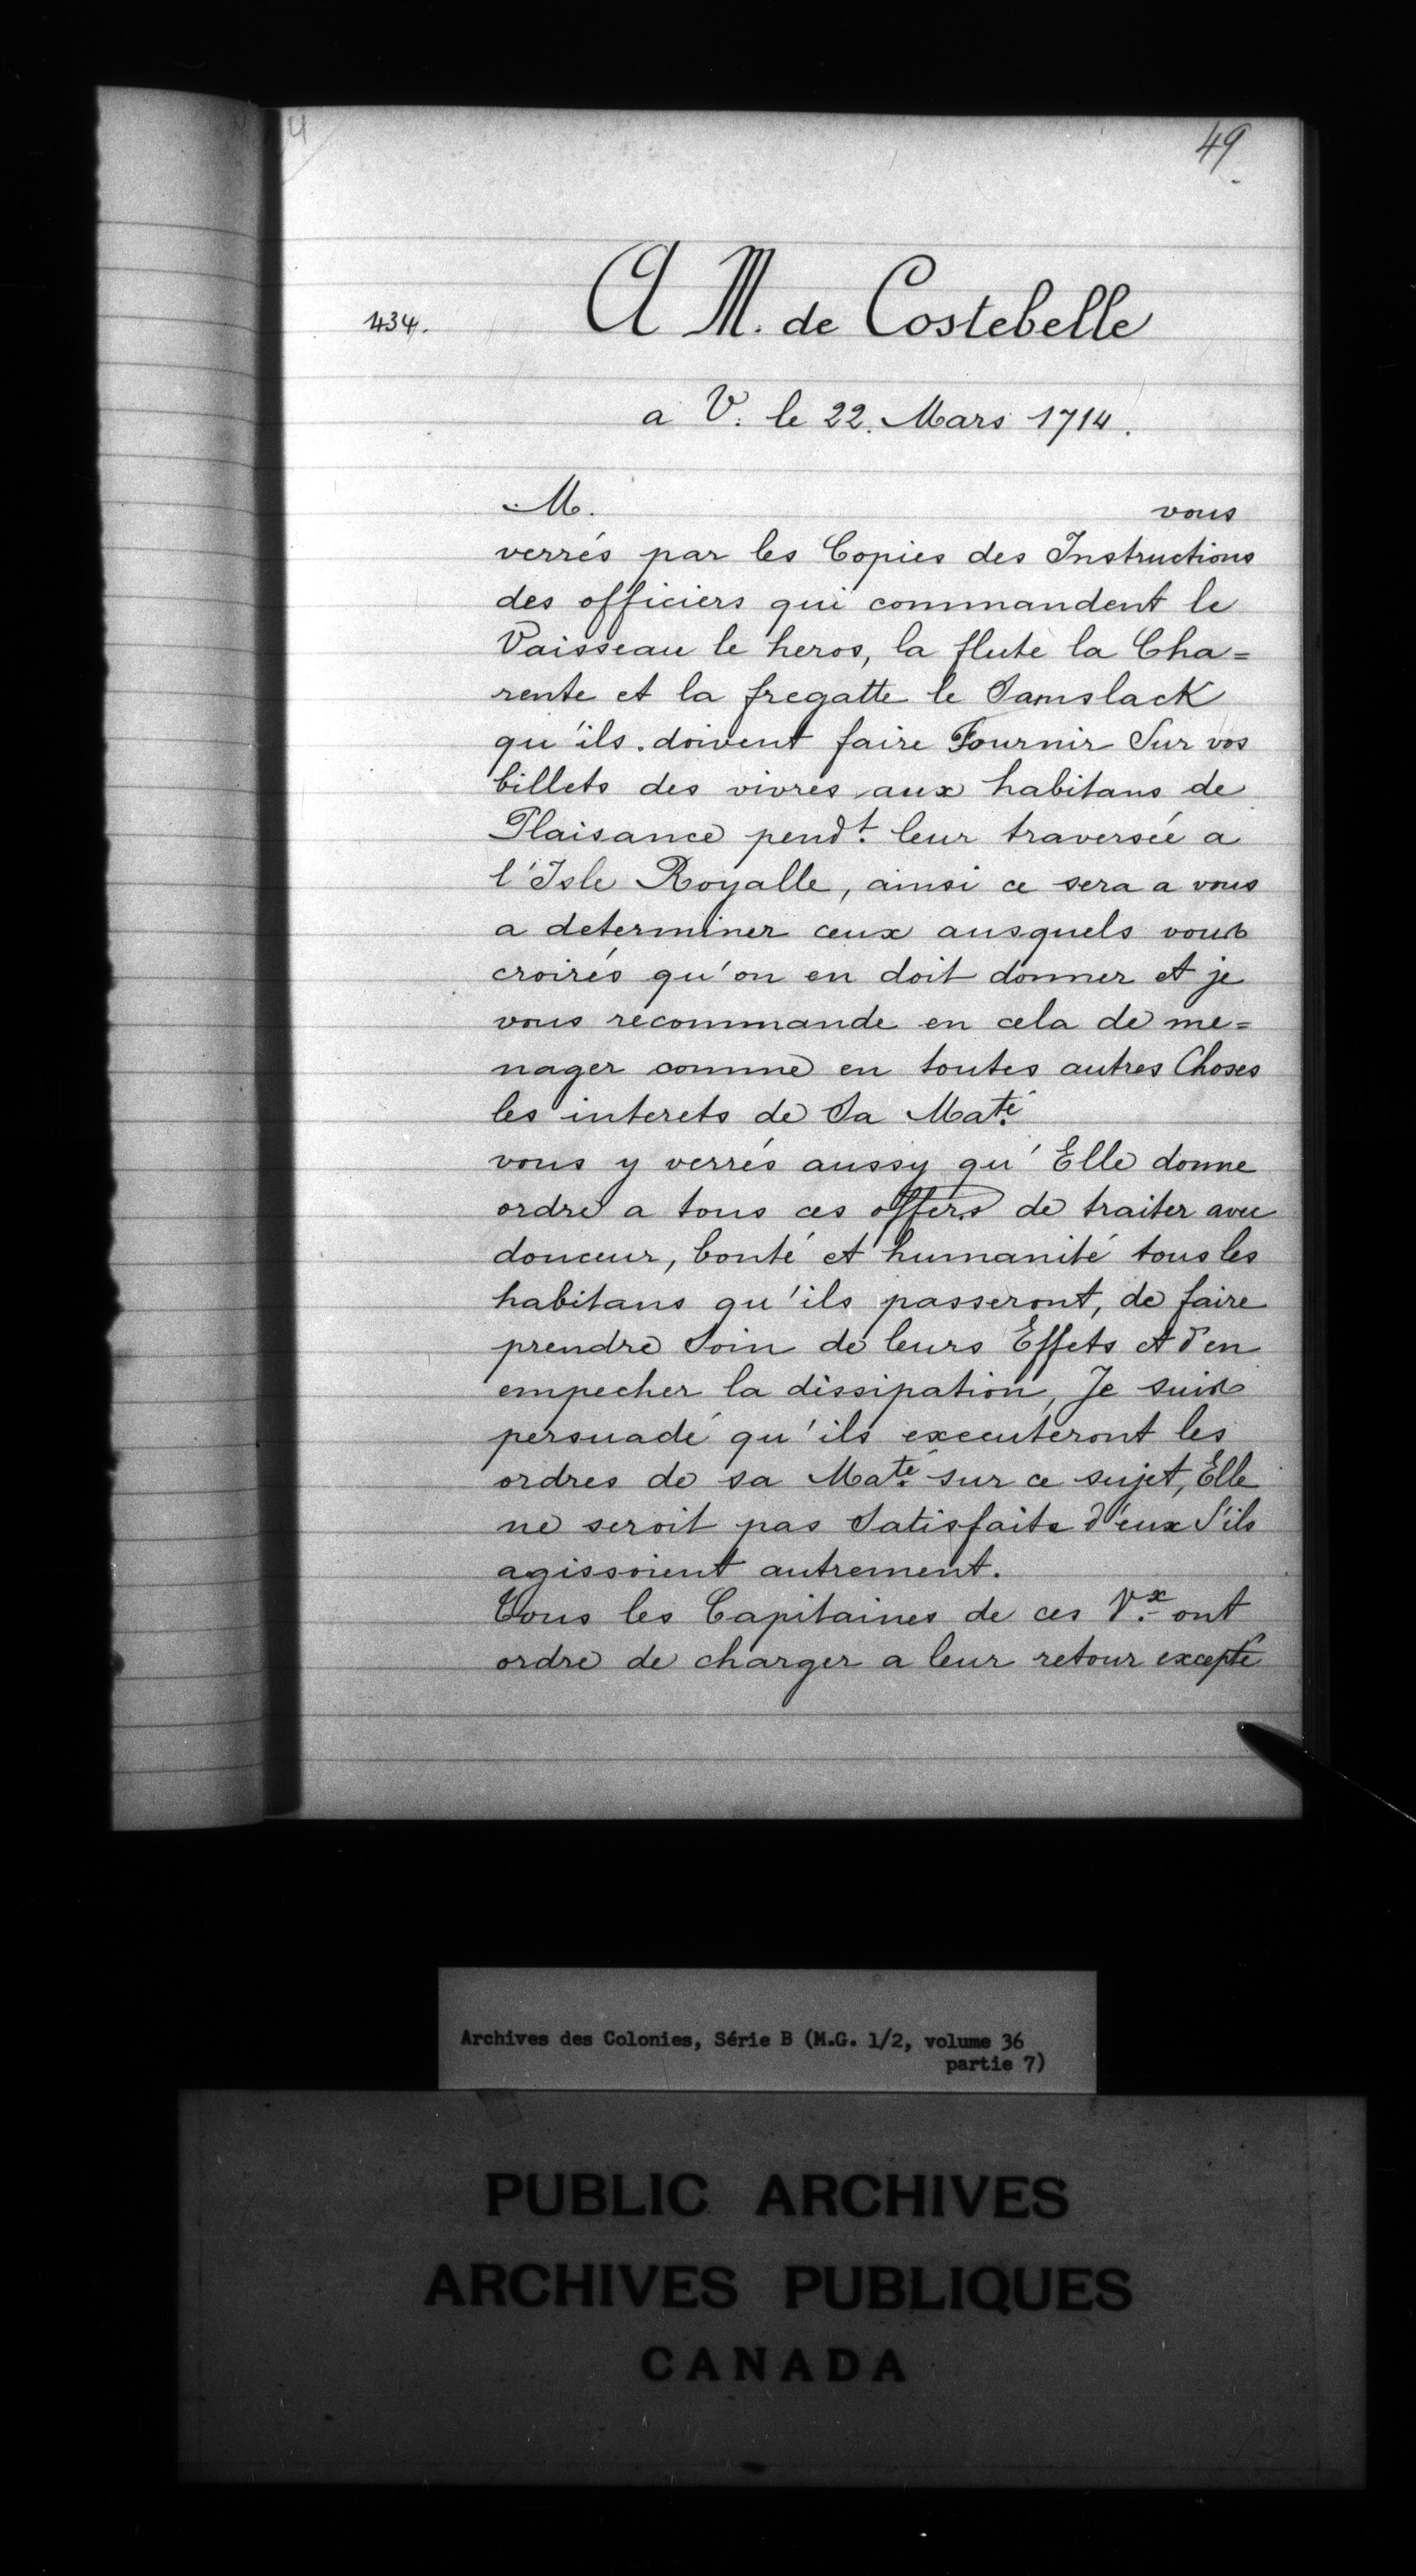 49
434.
A M. de Costebelle
a V. le 22. Mars 1714.
M. vous
verrés par les Copies des Instructions
des officiers qui commandent le
Vaisseau le heros, la flute la Cha=
rente et la fregatte le Samslack
qu'ils doivent faire Fournir Sur vos
billets des vivres aux habitans de
Plaisance pendt. leur traversée a
l'Isle Royalle, ainsi ce sera a vous
a determiner ceux ausquels vous
croirés qu'on en doit donner et je
vous recommande en cela de me=
nager comme en toutes autres Choses
les interets de Sa Maté.
vous y verrés aussy qu'Elle donne
ordre a tous ces offers de traiter avec
douceur, bonté et humanité tous les
habitans qu'ils passeront, de faire
prendre Soin de leurs Effets et d'en
empecher la dissipation, Je suis
persuadé qu'ils executeront les
ordres de sa Maté. sur ce sujet, Elle
ne seroit pas Satisfaite d'eux S'ils
agissoient autrement.
Tous les Capitaines de ces Vx. ont
ordre de charger a leur retour excepté
Archives des Colonies, Série B (M.G. 1/2, volume 36
partie 7)
PUBLIC ARCHIVES
ARCHIVES PUBLIQUES
CANADA